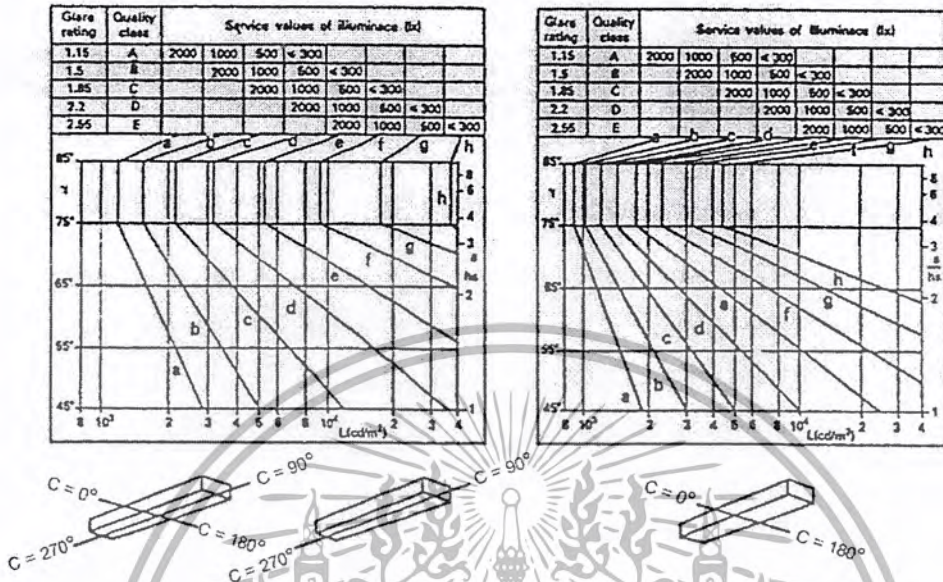 Glare rating Quality class Service values of illuminace (lx)
1.15 A 2000 1000 500 < 300
1.5 B 2000 1000 500 < 300
1.85 C 2000 1000 500 < 300
2.2 D 2000 1000 500 < 300
2.55 E 2000 1000 500 < 300
a b c d e f g h
85°
γ
75°
65°
55°
45°
8
6
4
3
a
hs
2
1
h
g
f
e
d
c
b
a
8 10³ 2 3 4 5 6 8 10⁴ 2 3 4
L(cd/m²)
C = 0° C = 90°
C = 270° C = 180°
C = 90°
C = 270°
Glare rating Quality class Service values of illuminace (lx)
1.15 A 2000 1000 500 < 300
1.5 B 2000 1000 500 < 300
1.85 C 2000 1000 500 < 300
2.2 D 2000 1000 500 < 300
2.55 E 2000 1000 500 < 300
a b c d e f g h
85°
γ
75°
65°
55°
45°
8
6
4
3
a
hs
2
1
h
g
f
e
d
c
b
a
8 10³ 2 3 4 5 6 8 10⁴ 2 3 4
L(cd/m²)
C = 0°
C = 180°